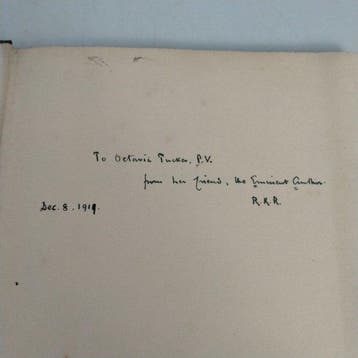 To Octavia Tucker, P.V.
from her friend, the Eminent Author.
R.K.R.
Dec. 8. 1919.